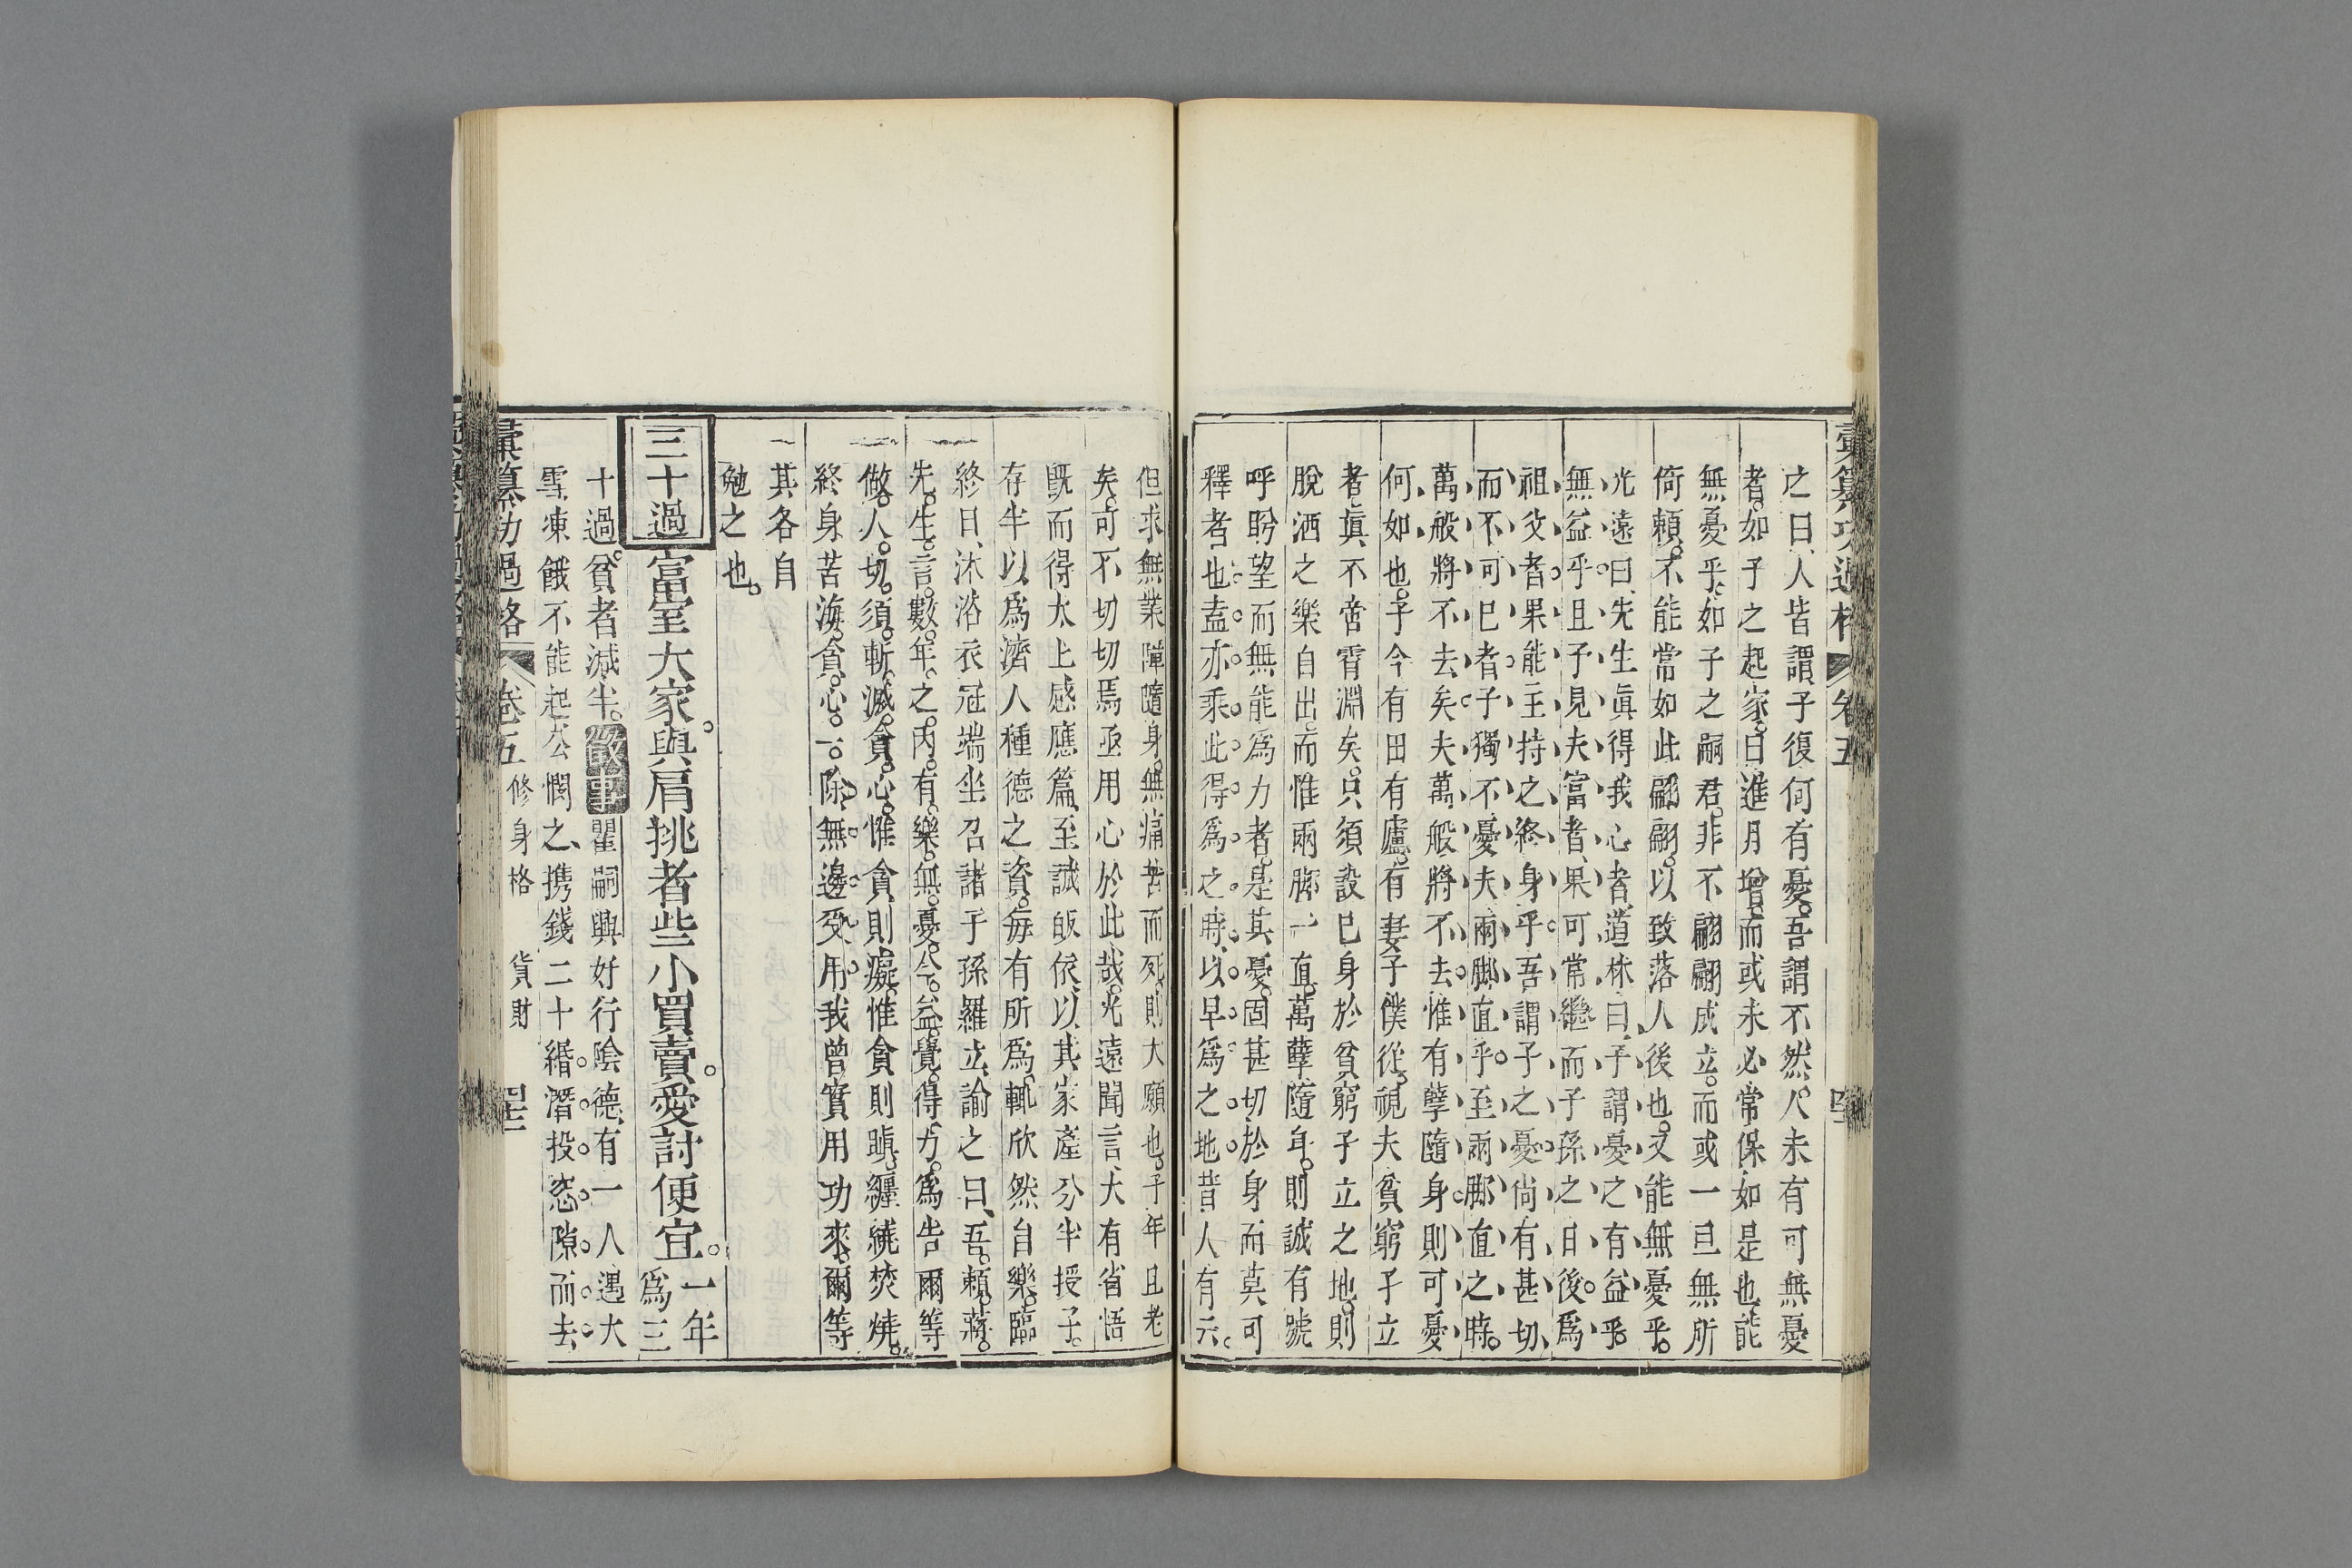 彙纂功過格 卷五
之曰人皆謂子復何有憂吾謂不然人未有可無憂
者如子之起家日進月增而或未必常保如是也能
無憂乎如子之嗣君非不翩翩成立而或一旦無所
倚賴不能常如此翩翩以致落人後也又能無憂乎
光遠曰先生眞得我心者道林曰予謂憂之有益乎
無益乎且予見夫富者果可常繼而子孫之日後爲
祖父者果能主持之終身乎吾謂子之憂尚有甚切
而不可已者子獨不憂夫兩脚直乎至兩脚直之時
萬般將不去矣夫萬般將不去惟有孽隨身則可憂
何如也子今有田有廬有妻子僕從視夫貧窮孑立
者眞不啻霄淵矣只須設已身於貧窮孑立之地則
脫洒之樂自出而惟兩脚一直萬孽隨身則誠有號
呼盻望而無能爲力者是其憂固甚切於身而莫可
釋者也盍亦乘此得爲之時以早爲之地昔人有云
但求無業障隨身無痛苦而死則大願也子年且老
矣可不切切焉亟用心於此哉光遠聞言大有省悟
既而得太上感應篇至誠皈依以其家產分半授子
存半以爲濟人種德之資每有所爲輒欣然自樂臨
終日沐浴衣冠端坐召諸子孫羅立諭之曰吾賴蔣
先生言數年之內有樂無憂今益覺得力爲告爾等
做人切須斬滅貪心惟貪則癡惟貪則瞋纏繞焚燒
終身苦海貪心一除無邊受用我曾實用功來爾等
其各自
勉之也
三十過 富室大家與肩挑者些小買賣愛討便宜 一年
爲三
十過貧者減半 徵事 瞿嗣興好行陰德有一人遇大
雪凍餓不能起公憫之攜錢二十緡潛投窓隙而去
彙纂功過格 卷五 修身格 貨財